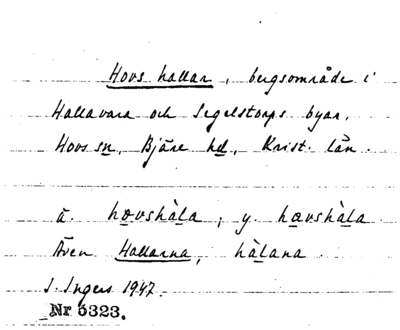 Hovs hallar, bergsområde i
Hallavara och Segelstorps byar,
Hovs sn, Bjäre hd, Krist. län.
ä. hovshàla, y. hævshàla
Även Hallarna, hàlana.
I. Ingers 1947.
Nr 5323.